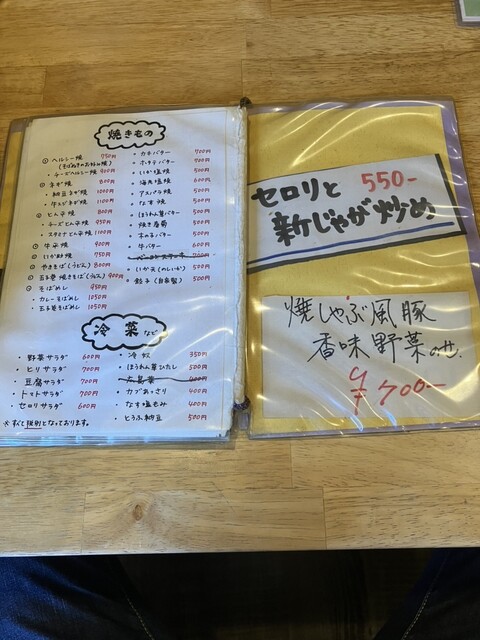 焼きもの
ヘルシー焼 750円
(そばぬきのお好み焼)
チーズヘルシー焼 900円
ネギ焼 600円
納豆ネギ焼 1000円
牛スジネギ焼 1100円
とん平焼 800円
チーズとん平焼 950円
スタミナとん平焼 1100円
牛平焼 950円
いか平焼 750円
やきそば(うどん) 800円
玉子巻焼きそば(うどん) 950円
そばめし 950円
カレーそばめし 1050円
玉子巻そばめし 1050円
カキバター 700円
ホタテバター 700円
いか塩焼 500円
海老塩焼 600円
アスパラ焼 500円
なす焼 500円
ほうれん草バター 500円
焼き春菊 500円
木の子バター 500円
牛バター 600円
いか天(のしいか) 500円
餃子(自家製) 500円
冷菜など
野菜サラダ 600円
ピリ辛サラダ 700円
豆腐サラダ 700円
トマトサラダ 700円
セロリサラダ 600円
冷奴 350円
ほうれん草ひたし 500円
広島菜 400円
カブあっさり 400円
なす塩もみ 400円
とうふ納豆 500円
※すべて税別となっております。
セロリと 550-
新じゃが炒め
焼しゃぶ風豚
香味野菜のせ
¥700-